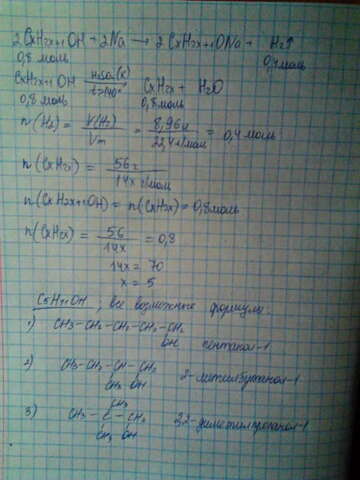 2CxH2x+1OH + 2Na → 2CxH2x+1ONa + H2↑
0,8 моль 0,4 моль
CxH2x+1OH H2SO4(К) t>140° CxH2x + H2O
0,8 моль 0,8 моль
n(H2) = V(H2) / Vm = 8,96 л / 22,4 л/моль = 0,4 моль
n(CxH2x) = 56 г / 14x г/моль
n(CxH2x+1OH) = n(CxH2x) = 0,8 моль
n(CxH2x) = 56 / 14x = 0,8
14x = 70
x = 5
C5H11OH, все возможные формулы:
1) CH3-CH2-CH2-CH2-CH2
OH пентанол-1
2) CH3-CH2-CH-CH2
CH3 OH 2-метилбутанол-1
CH3
3) CH3-C-CH2 2,2-диметилпропанол-1
CH3 OH